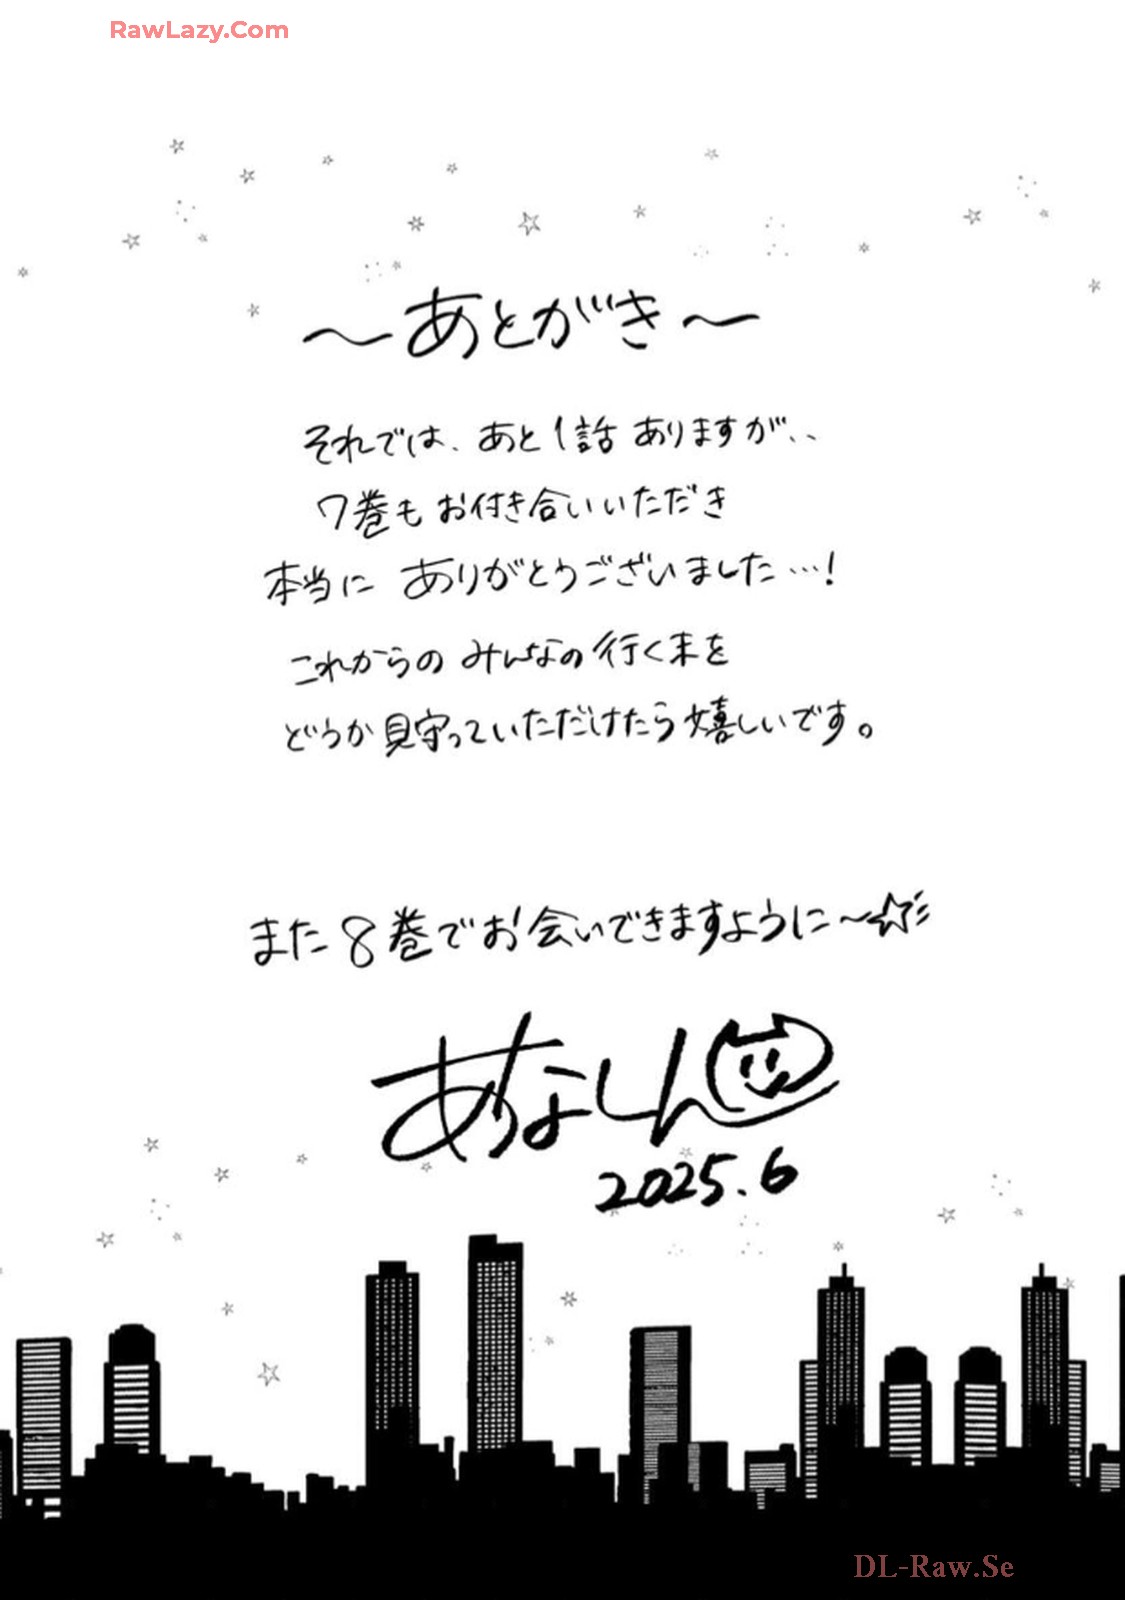 RawLazy.Com
～あとがき～
それでは、あと1話ありますが、、
7巻もお付き合いいただき
本当に ありがとうございました…!
これからの みんなの行く末を
どうか見守っていただけたら嬉しいです。
また8巻でお会いできますように～☆
あなしん
2025.6
DL-Raw.Se